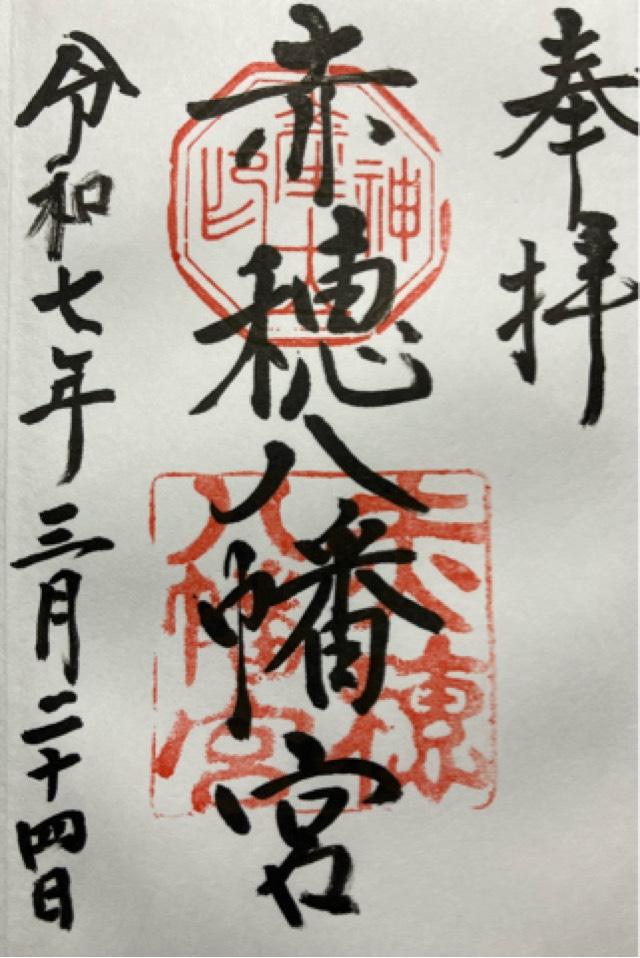 奉拝
赤穂八幡宮
令和七年三月二十四日
赤穂
八幡宮